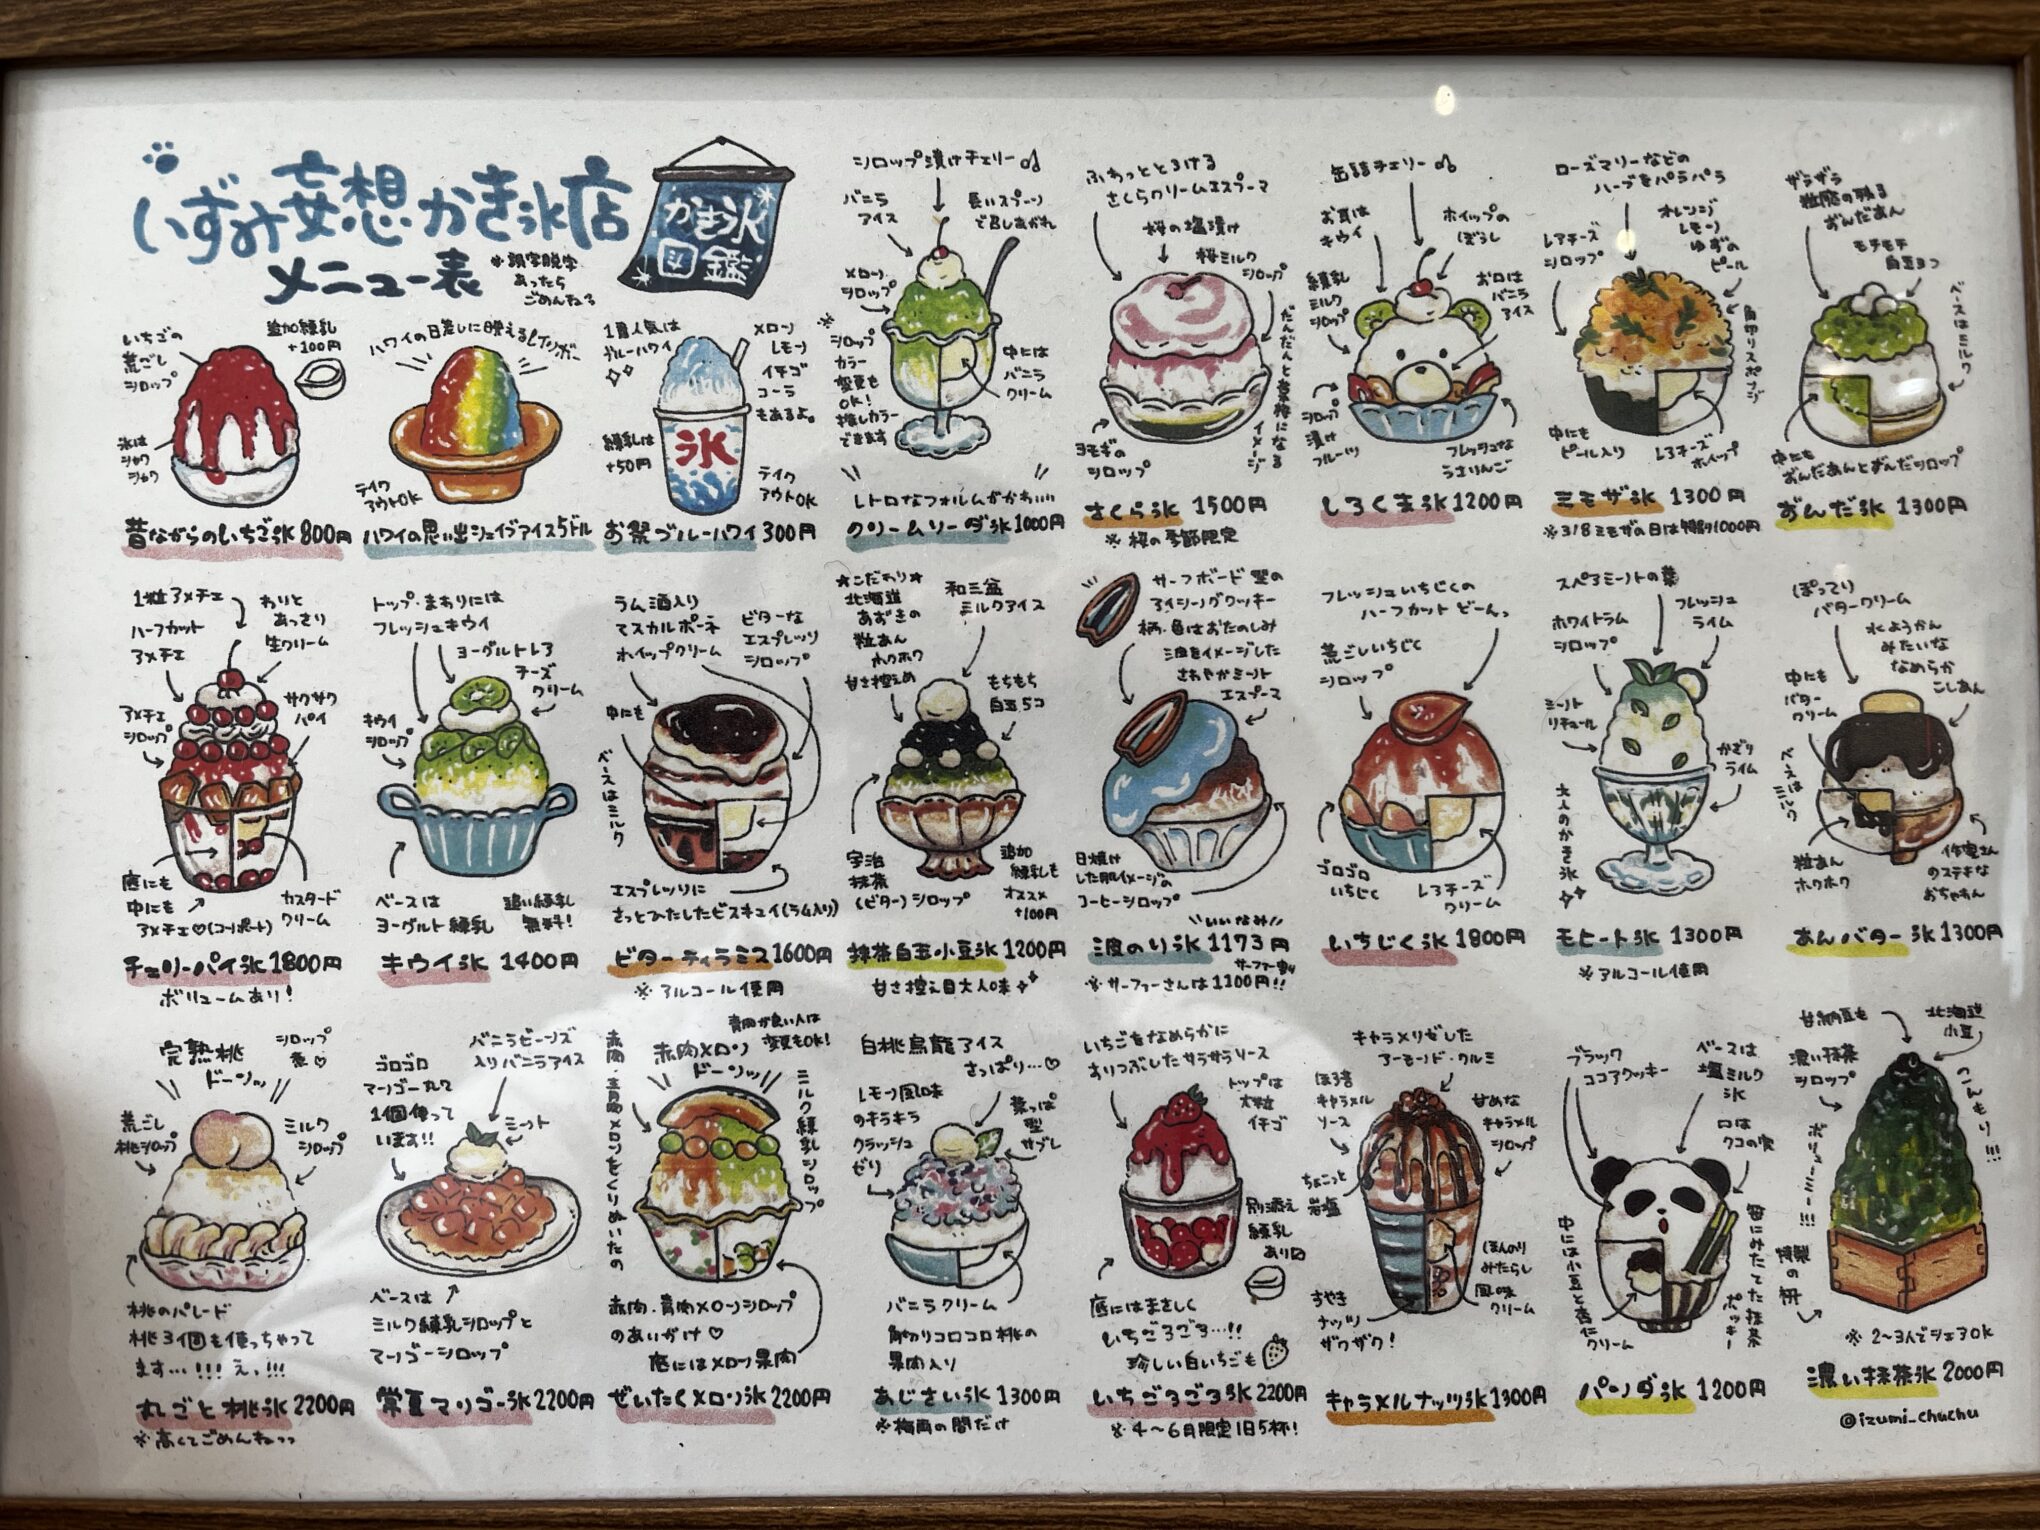 いずみ妄想かき氷店
メニュー表
※誤字脱字
あったら
ごめんね
かき氷
図鑑
いちごの
荒ごし
シロップ
追加練乳
+100円
氷は
シャク
シャク
昔ながらのいちご氷800円
ハワイの日差しに映えるレインボー
テイク
アウトOK
ハワイの思い出シェイブアイス5ドル
1番人気は
ブルーハワイ
メロン
レモン
イチゴ
コーラ
もあるよ。
練乳は
+50円
氷
テイク
アウトOK
お祭ブルーハワイ300円
シロップ漬けチェリー
バニラ
アイス
長いスプーン
で召しあがれ
メロン
シロップ
※
シロップ
カラー
変更も
OK!
推しカラー
できます
中には
バニラ
クリーム
レトロなフォルムがかわいい
クリームソーダ氷1000円
ふわっととろける
さくらクリームエスプーマ
桜の塩漬け
桜ミルク
シロップ
だんだんと葉桜になるイメージ
ヨモギの
シロップ
さくら氷 1500円
※桜の季節限定
缶詰チェリー
お耳は
キウイ
ホイップの
ぼうし
練乳
ミルク
シロップ
お口は
バニラ
アイス
シロップ
漬け
フルーツ
フレッシュな
うさりんご
しろくま氷1200円
ローズマリーなどの
ハーブをパラパラ
レアチーズ
シロップ
オレンジ
レモン
ゆずの
ピール
角切りスポンジ
中にも
ピール入り
レアチーズ
ホイップ
ミモザ氷 1300円
※3/8ミモザの日は特別1000円
ザラザラ
粒感の残る
ずんだあん
モチモチ
白玉3つ
ベースはミルク
中にも
ずんだあんとずんだシロップ
ずんだ氷 1300円
1粒アメチェ
わりと
あっさり
生クリーム
ハーフカット
アメチェ
アメチェ
シロップ
サクサク
パイ
底にも
中にも
アメチェ♡(コンポート)
カスタード
クリーム
チェリーパイ氷1800円
ボリュームあり!
トップ・まわりには
フレッシュキウイ
ヨーグルトレア
チーズ
クリーム
キウイ
シロップ
ベースは
ヨーグルト練乳
追い練乳
無料!
キウイ氷 1400円
ラム酒入り
マスカルポーネ
ホイップクリーム
ビターな
エスプレッソ
シロップ
中にも
ベースはミルク
エスプレッソに
さっとひたしたビスキュイ(ラム入り)
ビターティラミス1600円
※アルコール使用
★こだわり★
北海道
あずきの
粒あん
ホクホク
甘さ控えめ
和三盆
ミルクアイス
もちもち
白玉5コ
宇治
抹茶
(ビター)シロップ
追加
練乳も
オススメ
+100円
抹茶白玉小豆氷1200円
甘さ控え目大人味
サーフボード型の
アイシングクッキー
柄・色はおたのしみ
波をイメージした
さわやかミント
エスプーマ
日焼け
した肌イメージの
コーヒーシロップ
いいなみ
波のり氷1173円
サーファー割り
※サーファーさんは1100円!!
フレッシュいちじくの
ハーフカットどーんっ
荒ごしいちじく
シロップ
ゴロゴロ
いちじく
レアチーズ
クリーム
いちじく氷1800円
スペアミントの葉
ホワイトラム
シロップ
フレッシュ
ライム
ミント
リキュール
かざり
ライム
大人のかき氷
モヒート氷 1300円
※アルコール使用
ぽってり
バタークリーム
水ようかん
みたいな
なめらか
こしあん
中にも
バター
クリーム
ベースはミルク
粒あん
ホクホク
作家さん
のステキな
おちゃわん
あんバター氷1300円
完熟桃
ドーンッ
シロップ
煮♡
荒ごし
桃シロップ
ミルク
シロップ
桃のパレード
桃3個も使っちゃって
ます…!!!えっ!!!
丸ごと桃氷2200円
※高くてごめんねっっ
バニラビーンズ
入りバニラアイス
ゴロゴロ
マンゴー丸々
1個使って
います!!
ミント
ベースは
ミルク練乳シロップと
マンゴーシロップ
常夏マンゴー氷2200円
青肉が良い人は
変更もOK!
赤肉メロン
ドーンッ
赤肉・青肉メロンをくりぬいたの
ミルク練乳シロップ
赤肉・青肉メロンシロップ
のあいがけ♡
底にはメロン果肉
ぜいたくメロン氷2200円
白桃烏龍アイス
さっぱり…♡
レモン風味
のキラキラ
クラッシュ
ゼリー
葉っぱ
型
サブレ
バニラクリーム
角切りコロコロ桃の
果肉入り
あじさい氷 1300円
※梅雨の間だけ
いちごをなめらかに
すりつぶしたサラサラソース
トップは
大粒
イチゴ
別添え
練乳
あり
底にはまさしく
いちごろごろ…!!
珍しい白いちごも
いちごろごろ氷2200円
※4〜6月限定1日5杯!
キャラメリゼした
アーモンド・クルミ
ほろ苦
キャラメル
ソース
甘めな
キャラメル
シロップ
ちょこっと
岩塩
ほんのり
みたらし
風味
クリーム
すやき
ナッツ
ザクザク!
キャラメルナッツ氷1300円
ブラック
ココアクッキー
ベースは
塩ミルク
氷
口は
クコの実
笹にみたてた抹茶ポッキー
中には小豆と杏仁
クリーム
パンダ氷 1200円
甘納豆も
北海道
小豆
濃い抹茶
シロップ
こんもり!!!
ボリューミー!!!
特製の枡
※2〜3人でシェアOK
濃い抹茶氷2000円
@izumi_chuchu